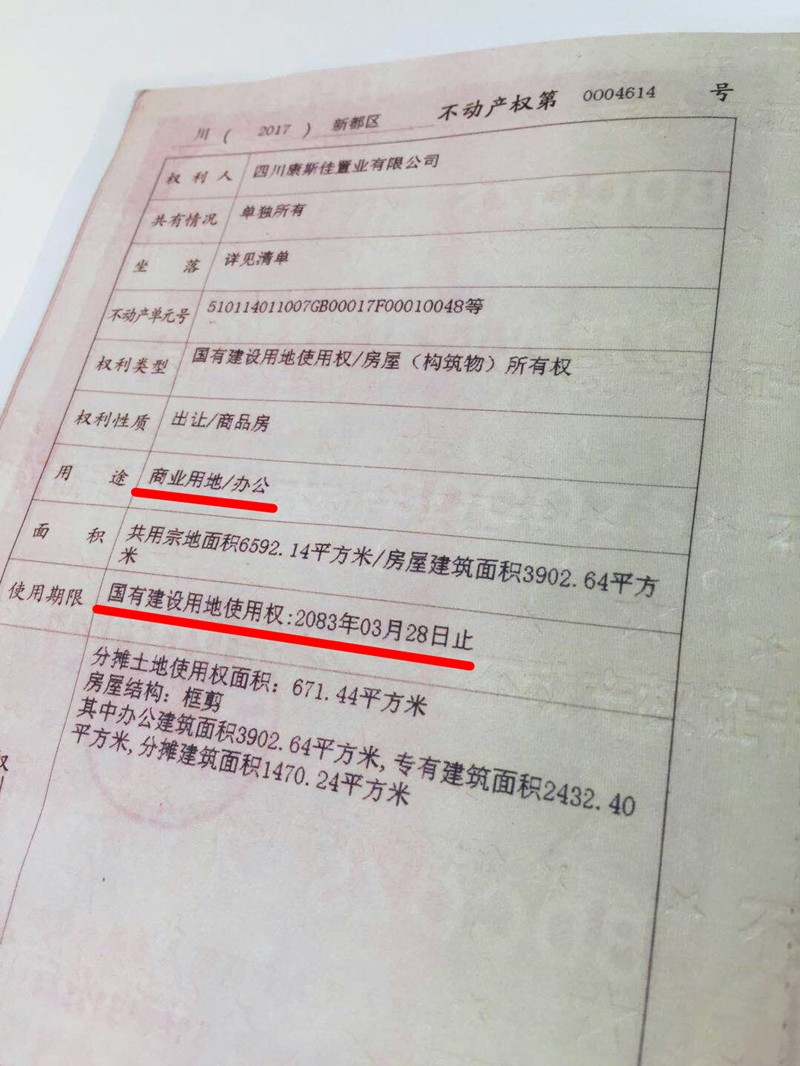 川 ( 2017 ) 新都区 不动产权第 0004614 号
权利人 四川康斯佳置业有限公司
共有情况 单独所有
坐落 详见清单
不动产单元号 510114011007GB00017F00010048等
权利类型 国有建设用地使用权/房屋（构筑物）所有权
权利性质 出让/商品房
用途 商业用地/办公
面积 共用宗地面积6592.14平方米/房屋建筑面积3902.64平方
米
使用期限 国有建设用地使用权:2083年03月28日止
分摊土地使用权面积: 671.44平方米
房屋结构: 框剪
其中办公建筑面积3902.64平方米, 专有建筑面积2432.40
平方米, 分摊建筑面积1470.24平方米